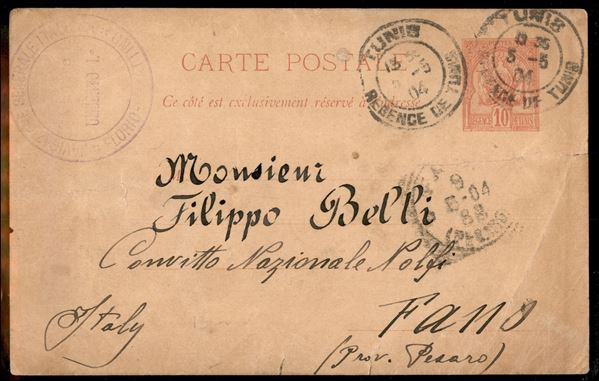 CARTE POSTALE
Ce côté est exclusivement réservé à l'adresse
TUNIS
5-5
04
REGENCE DE TUNIS
TUNIS
5-5
04
REGENCE DE TUNIS
10
Monsieur
Filippo Belli
Convitto Nazionale Nolfi
Fano
Italy
(Prov. Pesaro)